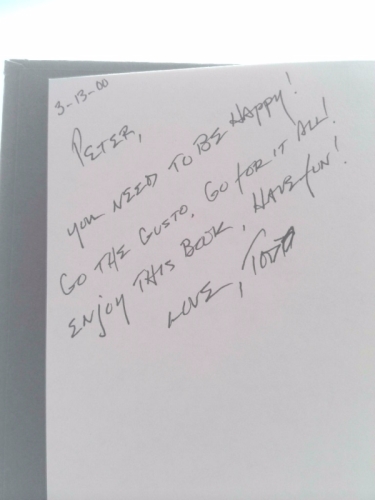 3-13-00
PETER,
YOU NEED TO BE HAPPY!
GO THE GUSTO. GO FOR IT ALL!
ENJOY THIS BOOK, HAVE FUN!
LOVE, TODD